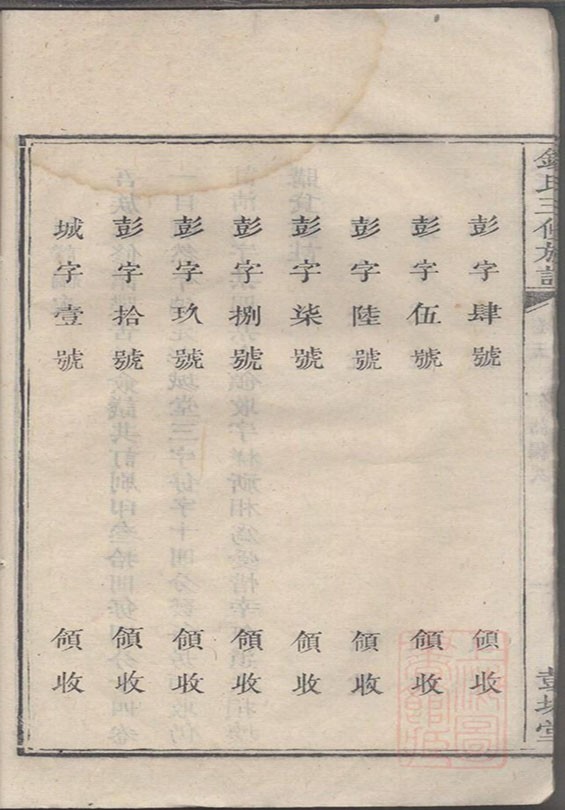 錢氏三修族譜
彭城堂
彭字肆號 領收
彭字伍號 領收
彭字陸號 領收
彭字柒號 領收
彭字捌號 領收
彭字玖號 領收
彭字拾號 領收
城字壹號 領收